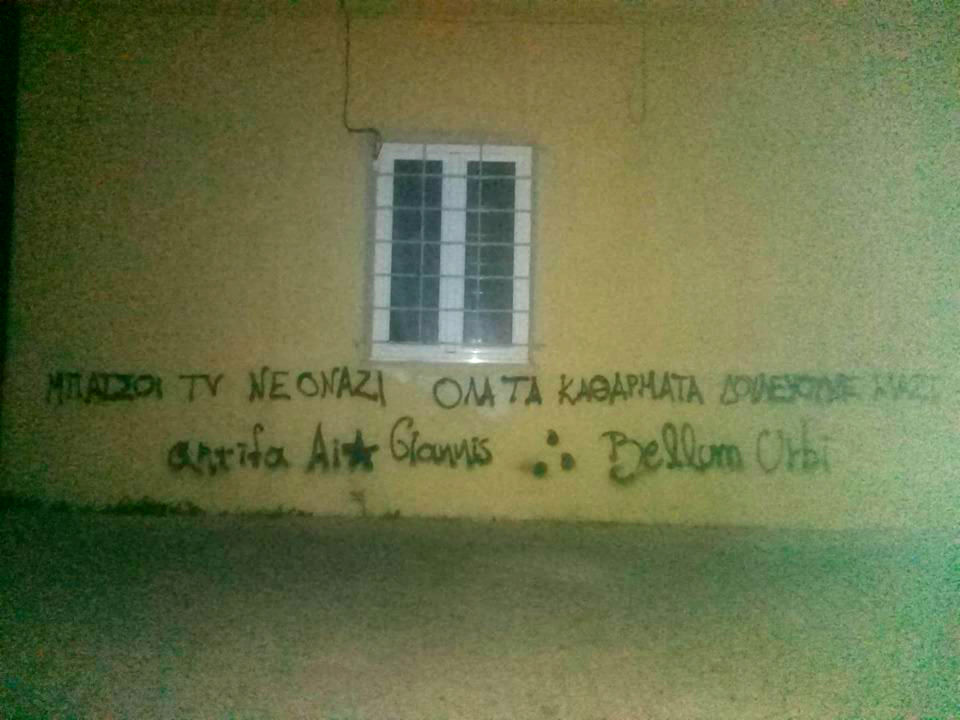 ΜΠΑΤΣΟΙ TV ΝΕΟΝΑΖΙ ΟΛΑ ΤΑ ΚΑΘΑΡΜΑΤΑ ΔΟΥΛΕΥΟΥΝΕ ΜΑΖΙ
antifa Ai★Giannis ∴ Bellum Urbi